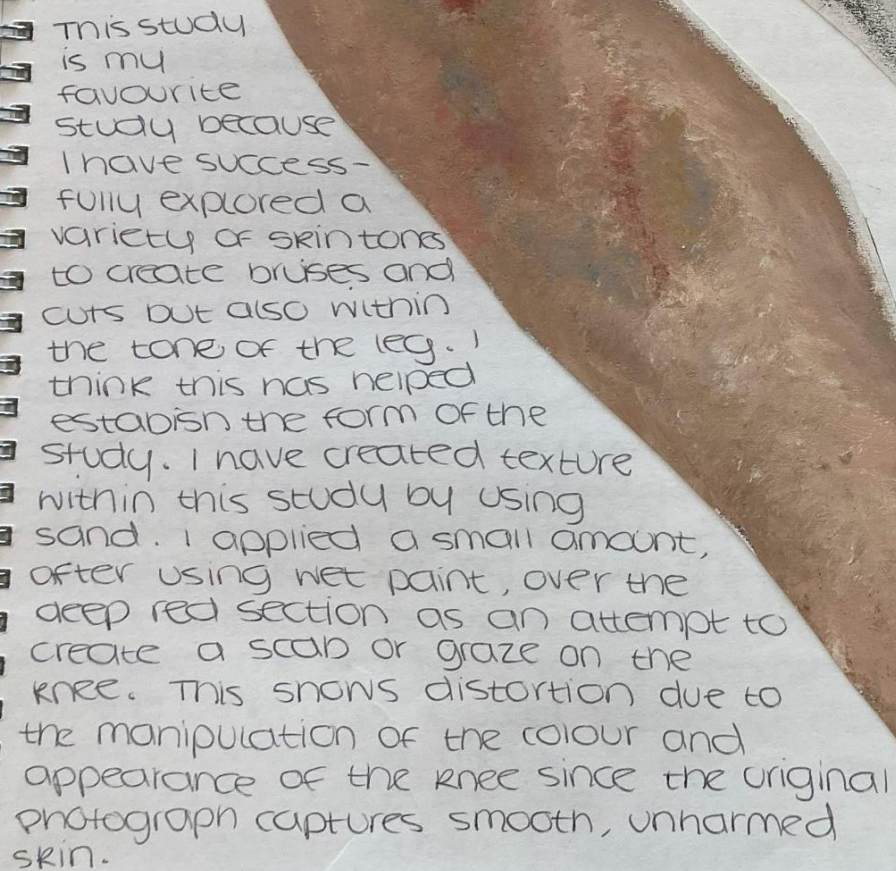 This study
is my
favourite
study because
I have success-
fully explored a
variety of skin tones
to create bruises and
cuts but also within
the tone of the leg. I
think this has helped
establish the form of the
study. I have created texture
within this study by using
sand. I applied a small amount,
after using wet paint, over the
deep red section as an attempt to
create a scab or graze on the
knee. This shows distortion due to
the manipulation of the colour and
appearance of the knee since the original
photograph captures smooth, unharmed
skin.